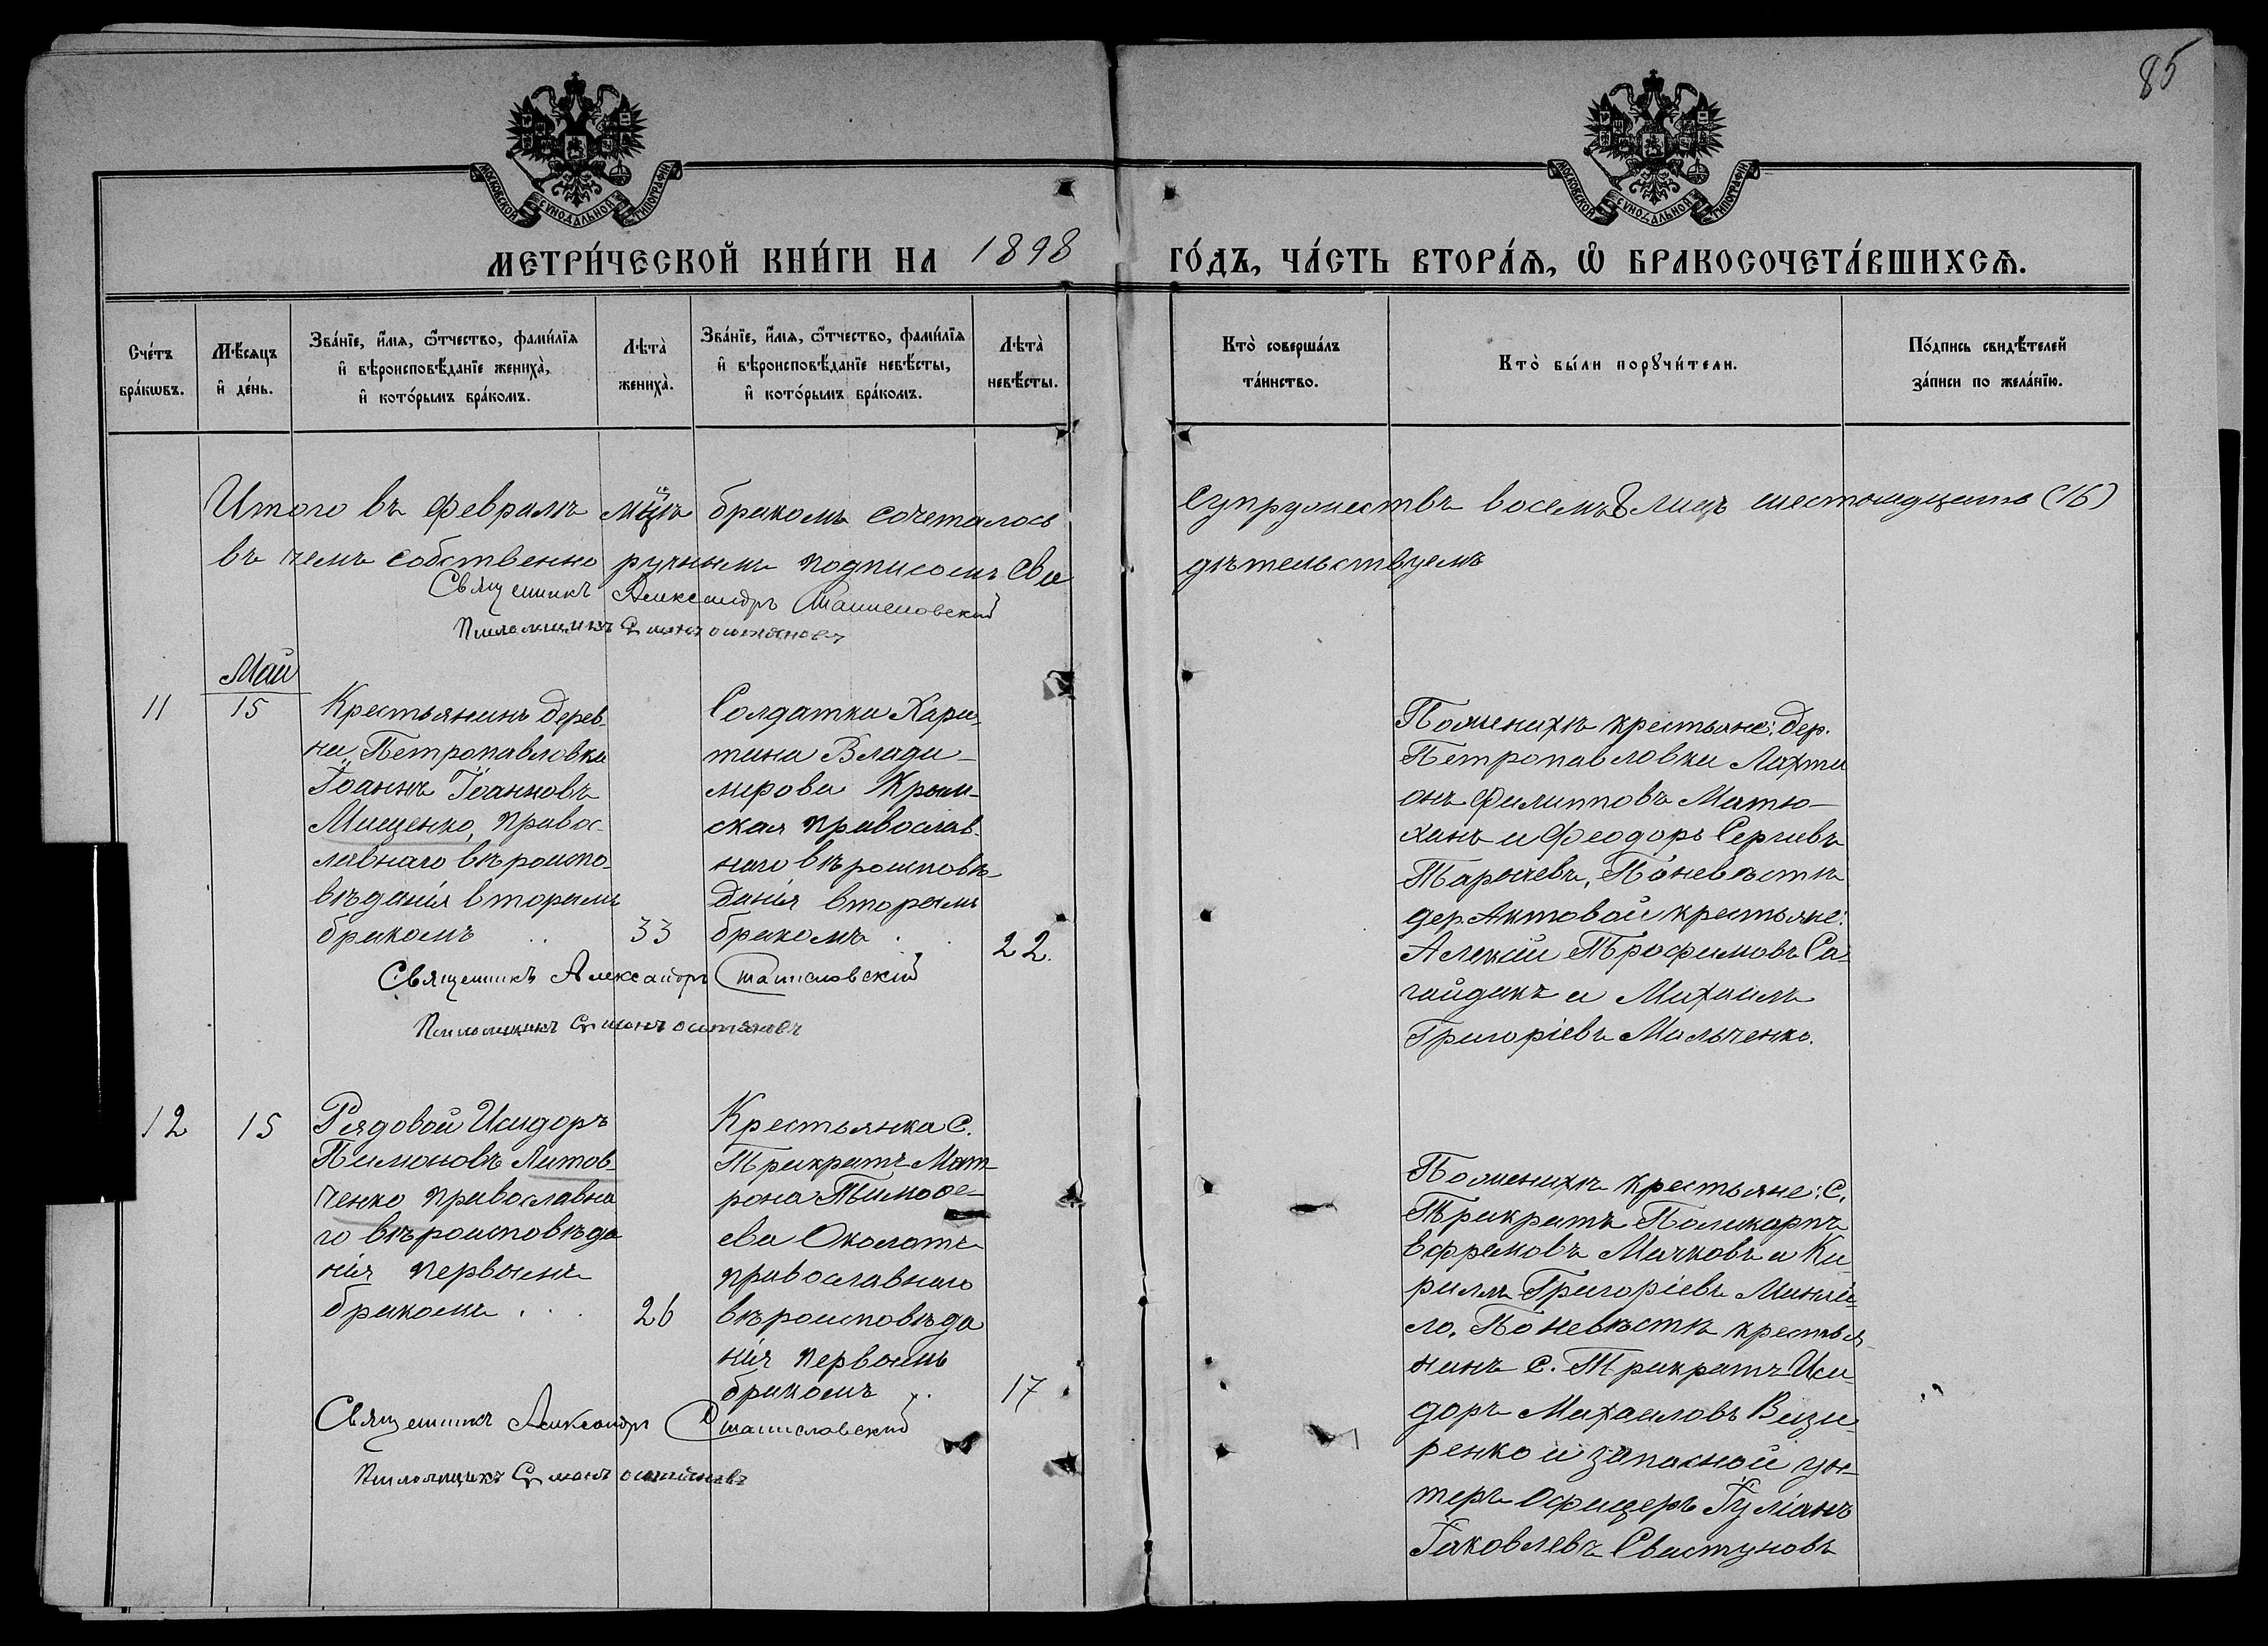 85
МОСКОВСКОЙ СУНОДАЛЬНОЙ ТИПОГРАФІИ
МОСКОВСКОЙ СУНОДАЛЬНОЙ ТИПОГРАФІИ
МЕТРИ́ЧЕСКОЙ КНИ́ГИ НА 1898 ГО́ДЪ, ЧА́СТЬ ВТОРА́Ѧ, Ѽ БРАКОСОЧЕТА́ВШИХСѦ.
Сче́тъ
бра́кѡвъ.
Мѣ́сѧцъ
и҆ де́нь.
Зва́нїе, и҆́мѧ, ѻ҆́тчество, фами́лїѧ
и҆ вѣроисповѣ́данїе жениха̀,
и҆ кото́рымъ бра́комъ.
Лѣта̀
жениха̀.
Зва́нїе, и҆́мѧ, ѻ҆́тчество, фами́лїѧ
и҆ вѣроисповѣ́данїе невѣ́сты,
и҆ кото́рымъ бра́комъ.
Лѣта̀
невѣ́сты.
Кто̀ соверша́лъ
та́инство.
Кто̀ бы́ли порꙋчи́тели.
По́дпись свидѣ́телей
за́писи по жела́нїю.
Итого въ Февралѣ мцѣ бракомъ сочеталось супружествъ восемь 8 лицъ шестонадцать (16)
въ чемъ собственно ручнымъ подписомъ сви дѣтельствуемъ
Священникъ Александръ Станиславский
Псаломщикъ
Май
11
15
Крестьянинъ дерев-
ни Петропавловки
Іоаннъ Іоанновъ
Мищенко, правос-
лавнаго вѣроиспо-
вѣданія вторымъ
бракомъ . .
33
Солдатка Хари-
тина Влади-
мирова Крым-
ская православ-
наго вѣроисповѣ-
данія вторымъ
бракомъ . .
22.
Поженихѣ крестьяне: дер.
Петропавловки Лахти
онъ Филипповъ Матю-
хинъ и Феодоръ Сергиевъ
Поневѣстѣ
дер Актовой крестьяне:
Алексій Трофимовъ Са-
гайдакъ и Михаилъ
Григоріевъ Мальченко.
Священникъ Александръ Станиславскій
Псаломщикъ
12
15
Рядовой Исидоръ
Пимоновъ Литов-
ченко православна
го вѣроисповѣда
нія первымъ
бракомъ . . .
26
Крестьянка С.
Трикратъ Мат-
рона Тимоѳе-
ева Околотъ
православнаго
вѣроисповѣда
нія первымъ
бракомъ . .
17
Поженихѣ крестьяне: С.
Трикратъ Поликарпъ
Ефремовъ Мачковъ и Ки
рилъ Григоріевъ
Поневѣстѣ крестья
нинъ с. Трикратъ Иси
доръ Михаиловъ Визи
ренко и запасной ун-
теръ Офицеръ Іуліанъ
Іаковлевъ Свистуновъ
Священникъ Александръ Станиславский
Псаломщикъ